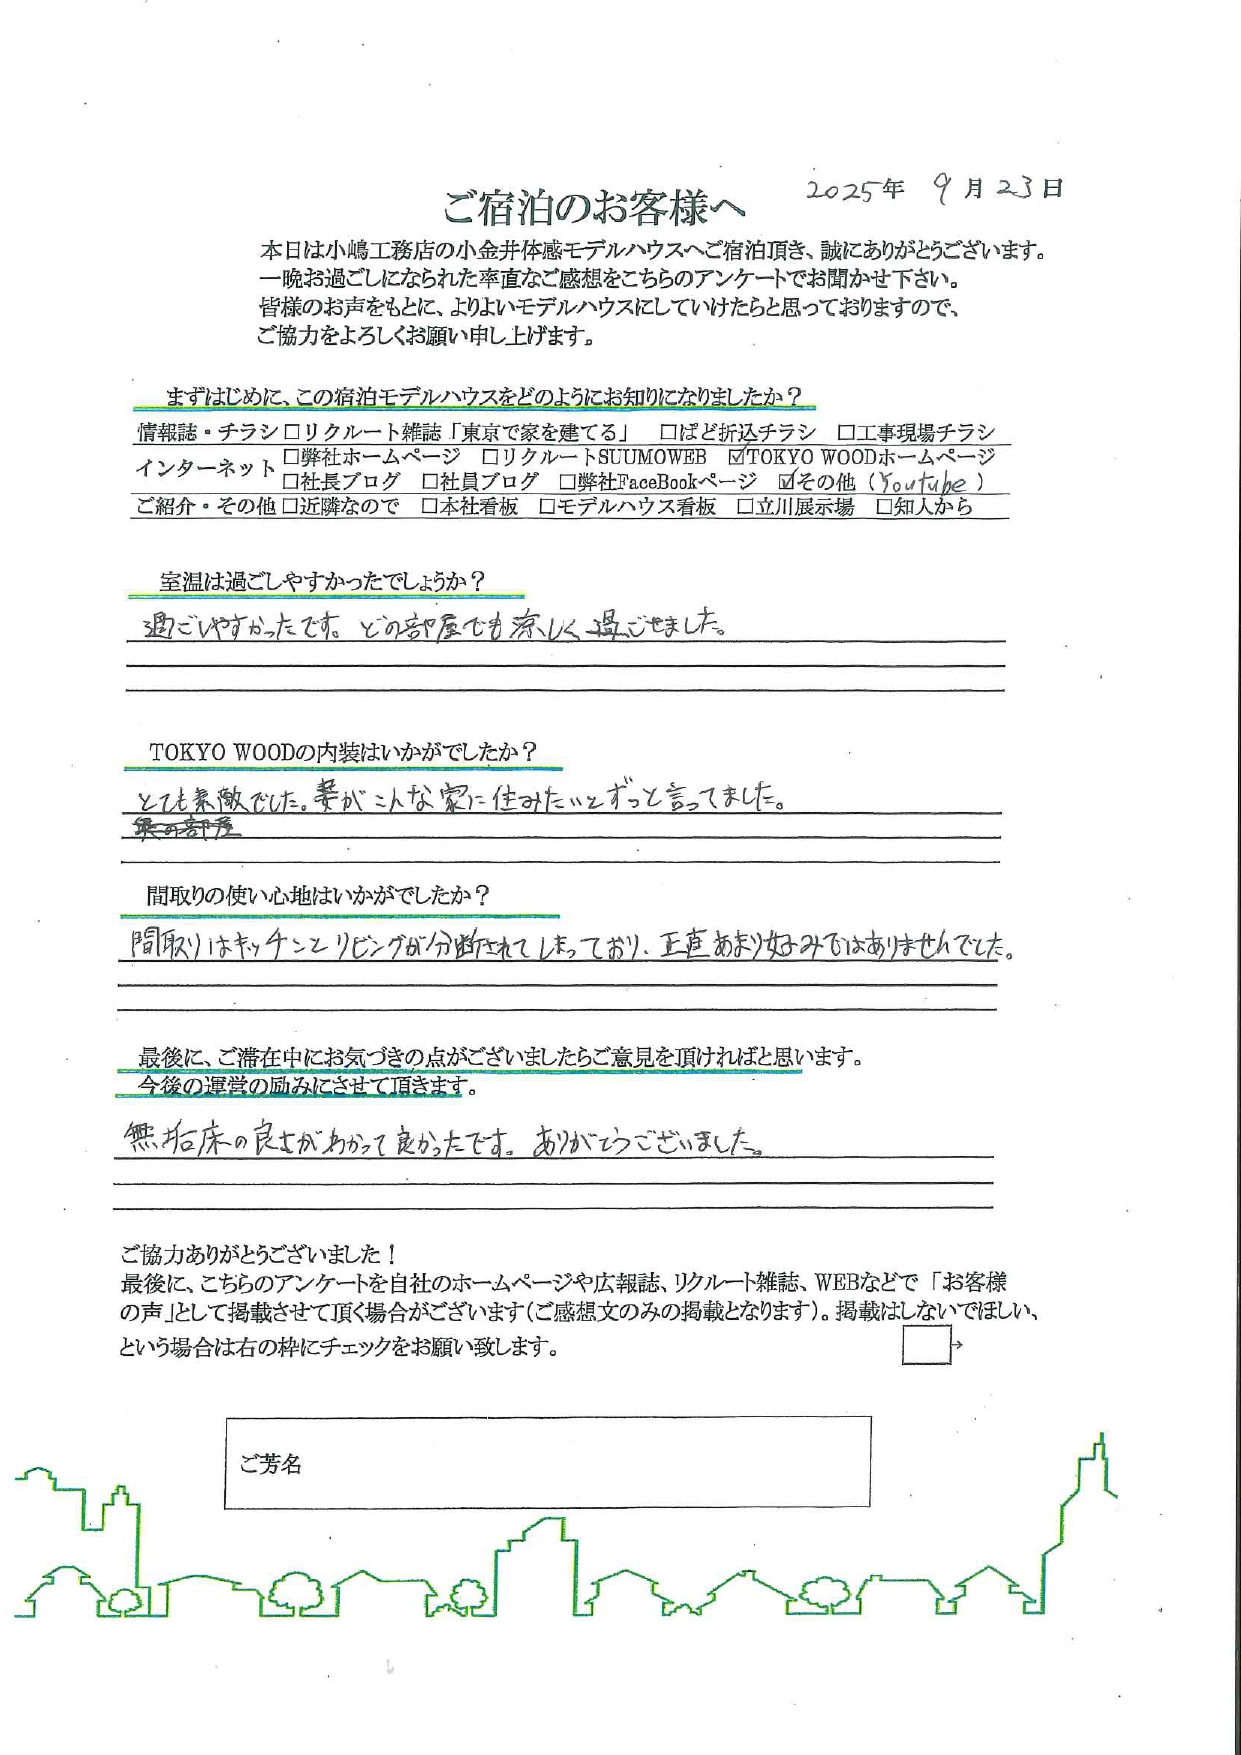 2025年 9月23日
ご宿泊のお客様へ
本日は小嶋工務店の小金井体感モデルハウスへご宿泊頂き、誠にありがとうございます。
一晩お過ごしになられた率直なご感想をこちらのアンケートでお聞かせ下さい。
皆様のお声をもとに、よりよいモデルハウスにしていけたらと思っておりますので、
ご協力をよろしくお願い申し上げます。
まずはじめに、この宿泊モデルハウスをどのようにお知りになりましたか？
情報誌・チラシ □リクルート雑誌「東京で家を建てる」 □ぱど折込チラシ □工事現場チラシ
インターネット □弊社ホームページ □リクルートSUUMOWEB ☑TOKYO WOODホームページ
□社長ブログ □社員ブログ □弊社FaceBookページ ☑その他（Youtube）
ご紹介・その他 □近隣なので □本社看板 □モデルハウス看板 □立川展示場 □知人から
室温は過ごしやすかったでしょうか？
過ごしやすかったです。どの部屋でも涼しく過ごせました。
TOKYO WOODの内装はいかがでしたか？
とても素敵でした。妻がこんな家に住みたいとずっと言ってました。
間取りの使い心地はいかがでしたか？
間取りはキッチンとリビングが分断されてしまっており、正直あまり好みではありませんでした。
最後に、ご滞在中にお気づきの点がございましたらご意見を頂ければと思います。
今後の運営の励みにさせて頂きます。
無垢床の良さがわかって良かったです。ありがとうございました。
ご協力ありがとうございました！
最後に、こちらのアンケートを自社のホームページや広報誌、リクルート雑誌、WEBなどで「お客様
の声」として掲載させて頂く場合がございます（ご感想文のみの掲載となります）。掲載はしないでほしい、
という場合は右の枠にチェックをお願い致します。
ご芳名